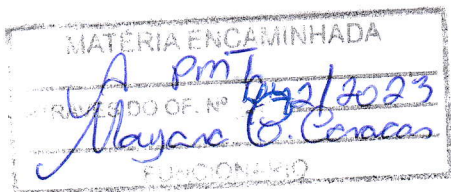 MATÉRIA ENCAMINHADA
A PMT
ATRAVÉS DO OF. Nº 042/2023
Mayara O. Caracas
FUNCIONÁRIO